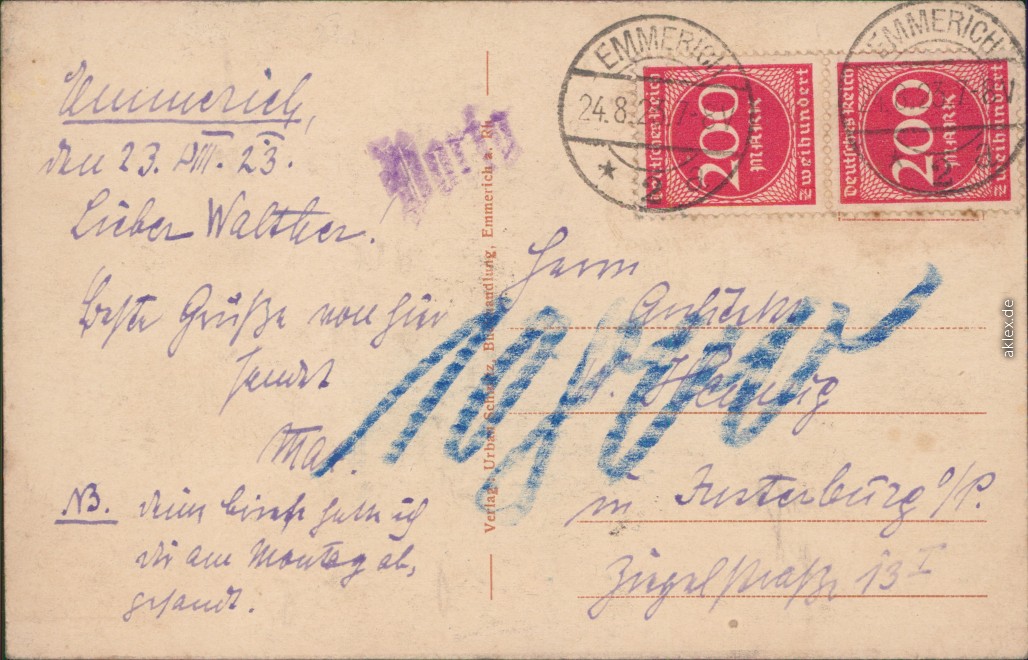 Emmerich,
den 23. VIII. 23.
Lieber Walther!
Beste Grüße von hier
sendet
Max.
NB. deine briefe habe ich
dir am Montag ab,
gesandt.
Porto
Verlag Urban Schwarz, Buchhandlung, Emmerich a. Rh.
EMMERICH
24.8.23.7-8
* 2
Deutsches Reich
200
MARK
Zweihundert
EMMERICH
7-8 V
2
Deutsches Reich
200
MARK
Zweihundert
Herrn
Hennig
in Insterburg O/P.
Ziegelstraße 13 I
aklex.de